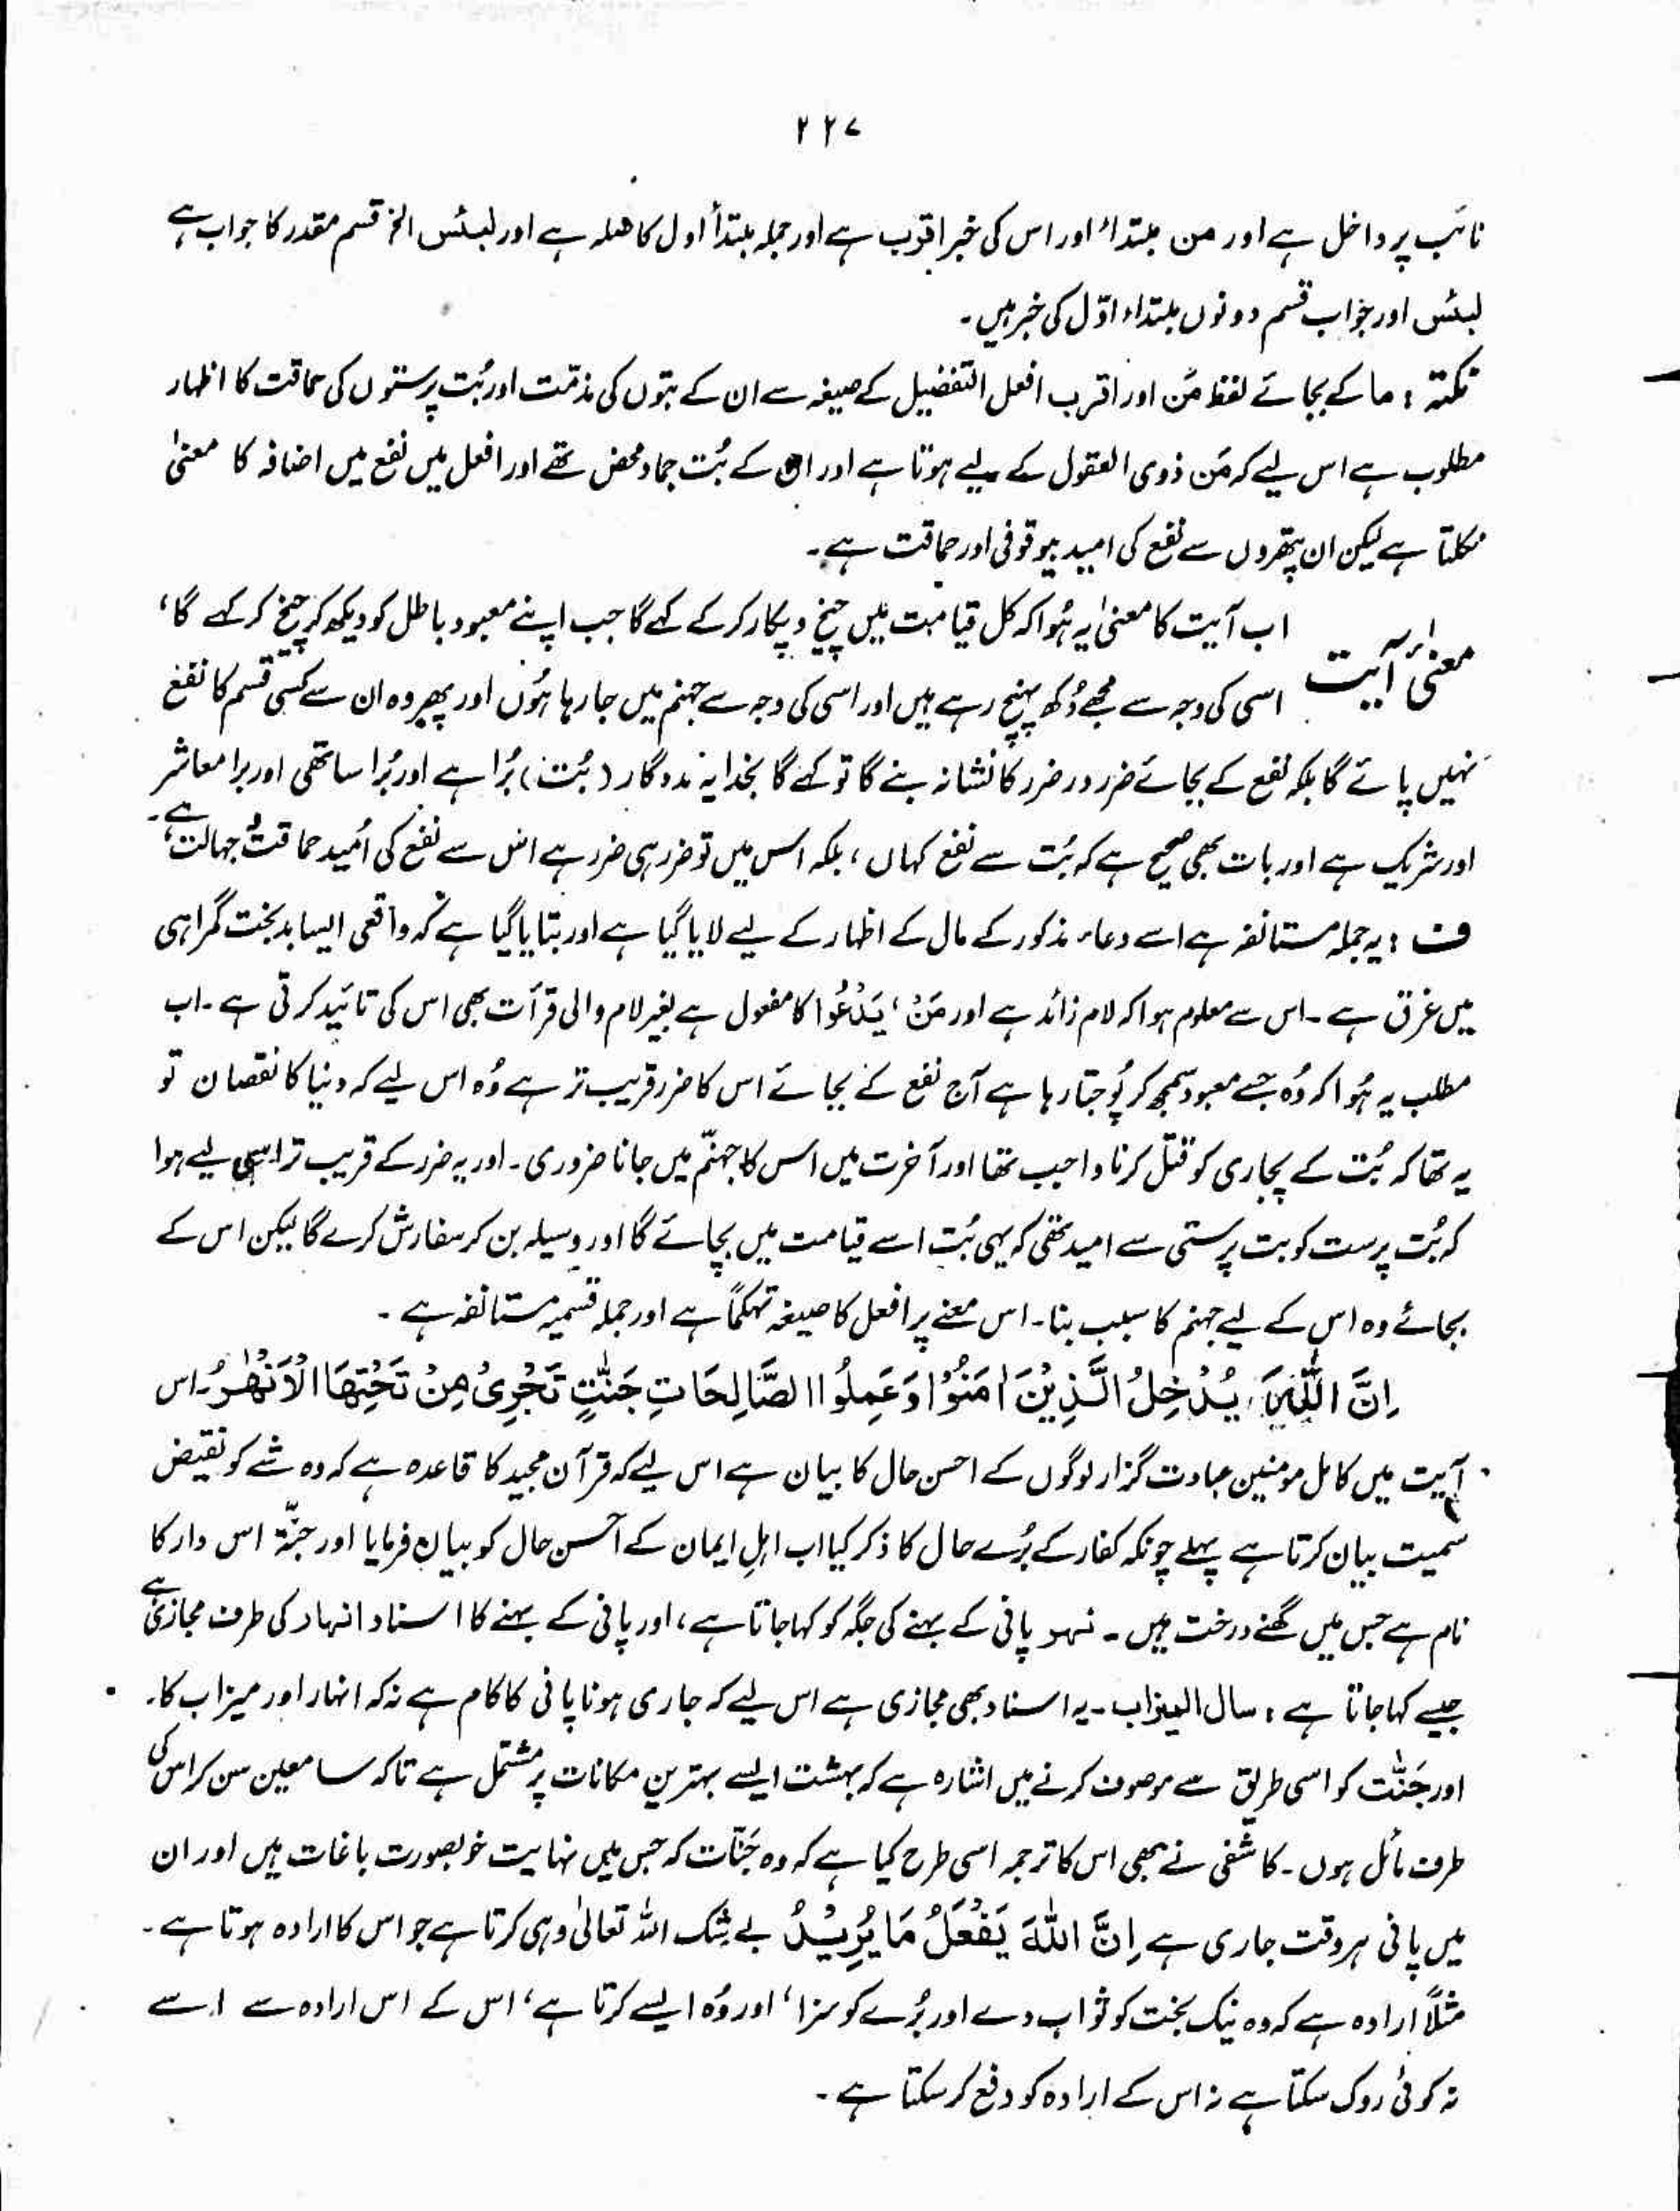 ۲۲۷
نائب پر داخل ہے اور من مبتداء اور اس کی خبر اقرب ہے اور جملہ مبتدأ اول کا صلہ ہے اور لبئس الخ قسم مقدر کا جواب ہے
لبئس اور جواب قسم دونوں مبتداء اوّل کی خبر ہیں۔
نکتہ : ما کے بجائے لفظ مَن اور اقرب افعل التفضیل کے صیغہ سے ان کے بتوں کی مذمّت اور بُت پرستوں کی حماقت کا اظہار
مطلوب ہے اس لیے کہ مَن ذوی العقول کے لیے ہوتا ہے اور ان کے بُت جماد محض تھے اور افعل میں نفع میں اضافہ کا معنیٰ
نکلتا ہے لیکن ان پتھروں سے نفع کی امید بیوقوفی اور حماقت ہے۔
معنیٰ آیت اب آیت کا معنیٰ یہ ہُوا کہ کل قیامت میں چیخ و پکار کر کے کہے گا جب اپنے معبود باطل کو دیکھ کر چیخ کر کہے گا،
اسی کی وجہ سے مجھے دُکھ پہنچ رہے ہیں اور اسی کی وجہ سے جہنم میں جا رہا ہُوں اور پھر وہ ان سے کسی قسم کا نفع
نہیں پائے گا بلکہ نفع کے بجائے ضرر در ضرر کا نشانہ بنے گا تو کہے گا بخدا یہ مددگار (بُت) بُرا ہے اور بُرا ساتھی اور برا معاشر
اور شریک ہے اور بات بھی صحیح ہے کہ بُت سے نفع کہاں، بلکہ اس میں تو ضرر ہی ضرر ہے اس سے نفع کی اُمید حماقت و جہالت ہے۔
ف : یہ جملہ مستانفہ ہے اسے دعاء مذکور کے مال کے اظہار کے لیے لایا گیا ہے اور بتایا گیا ہے کہ واقعی ایسا بدبخت گمراہی
میں غرق ہے۔ اس سے معلوم ہوا کہ لام زائد ہے اور مَنْ، یَدْعُوْا کا مفعول ہے بغیر لام والی قرآت بھی اس کی تائید کرتی ہے۔ اب
مطلب یہ ہُوا کہ وُہ جسے معبود سمجھ کر پُوجتا رہا ہے آج نفع کے بجائے اس کا ضرر قریب تر ہے وُہ اس لیے کہ دنیا کا نقصان تو
یہ تھا کہ بُت کے پجاری کو قتل کرنا واجب تھا اور آخرت میں اس کا جہنّم میں جانا ضروری۔ اور یہ ضرر کے قریب تر اسی لیے ہوا
کہ بُت پرست کو بت پرستی سے امید تھی کہ یہی بُت اسے قیامت میں بچائے گا اور وسیلہ بن کر سفارش کرے گا لیکن اس کے
بجائے وہ اس کے لیے جہنم کا سبب بنا۔ اس معنے پر افعل کا صیغہ تہکمًا ہے اور جملہ قسمیہ مستانفہ ہے۔
اِنَّ اللّٰہَ یُدْخِلُ الَّذِیْنَ اٰمَنُوْا وَعَمِلُوا الصَّالِحَاتِ جَنّٰتٍ تَجْرِیْ مِنْ تَحْتِھَا الْاَنْھٰرُ۔ اس
آیت میں کامل مومنین عبادت گزار لوگوں کے احسن حال کا بیان ہے اس لیے کہ قرآن مجید کا قاعدہ ہے کہ وہ شے کو نقیض
سمیت بیان کرتا ہے پہلے چونکہ کفار کے بُرے حال کا ذکر کیا اب اہلِ ایمان کے احسن حال کو بیان فرمایا اور جنّۃ اس دار کا
نام ہے جس میں گھنے درخت ہیں۔ نہر پانی کے بہنے کی جگہ کو کہا جاتا ہے، اور پانی کے بہنے کا اسناد انہار کی طرف مجازی ہے
جیسے کہا جاتا ہے : سال المیزاب۔ یہ اسناد بھی مجازی ہے اس لیے کہ جاری ہونا پانی کا کام ہے نہ کہ انہار اور میزاب کا۔
اور جَنّٰت کو اسی طریق سے موصوف کرنے میں اشارہ ہے کہ بہشت ایسے بہترین مکانات پر مشتمل ہے تاکہ سامعین سن کر اس کی
طرف مائل ہوں۔ کاشفی نے بھی اس کا ترجمہ اسی طرح کیا ہے کہ وہ جَنّات کہ جس میں نہایت خوبصورت باغات ہیں اور ان
میں پانی ہر وقت جاری ہے اِنَّ اللّٰہَ یَفْعَلُ مَا یُرِیْدُ بے شک اللہ تعالیٰ وہی کرتا ہے جو اس کا ارادہ ہوتا ہے۔
مثلًا ارادہ ہے کہ وہ نیک بخت کو ثواب دے اور بُرے کو سزا، اور وُہ ایسے کرتا ہے، اس کے اس ارادہ سے اسے
نہ کوئی روک سکتا ہے نہ اس کے ارادہ کو دفع کر سکتا ہے۔